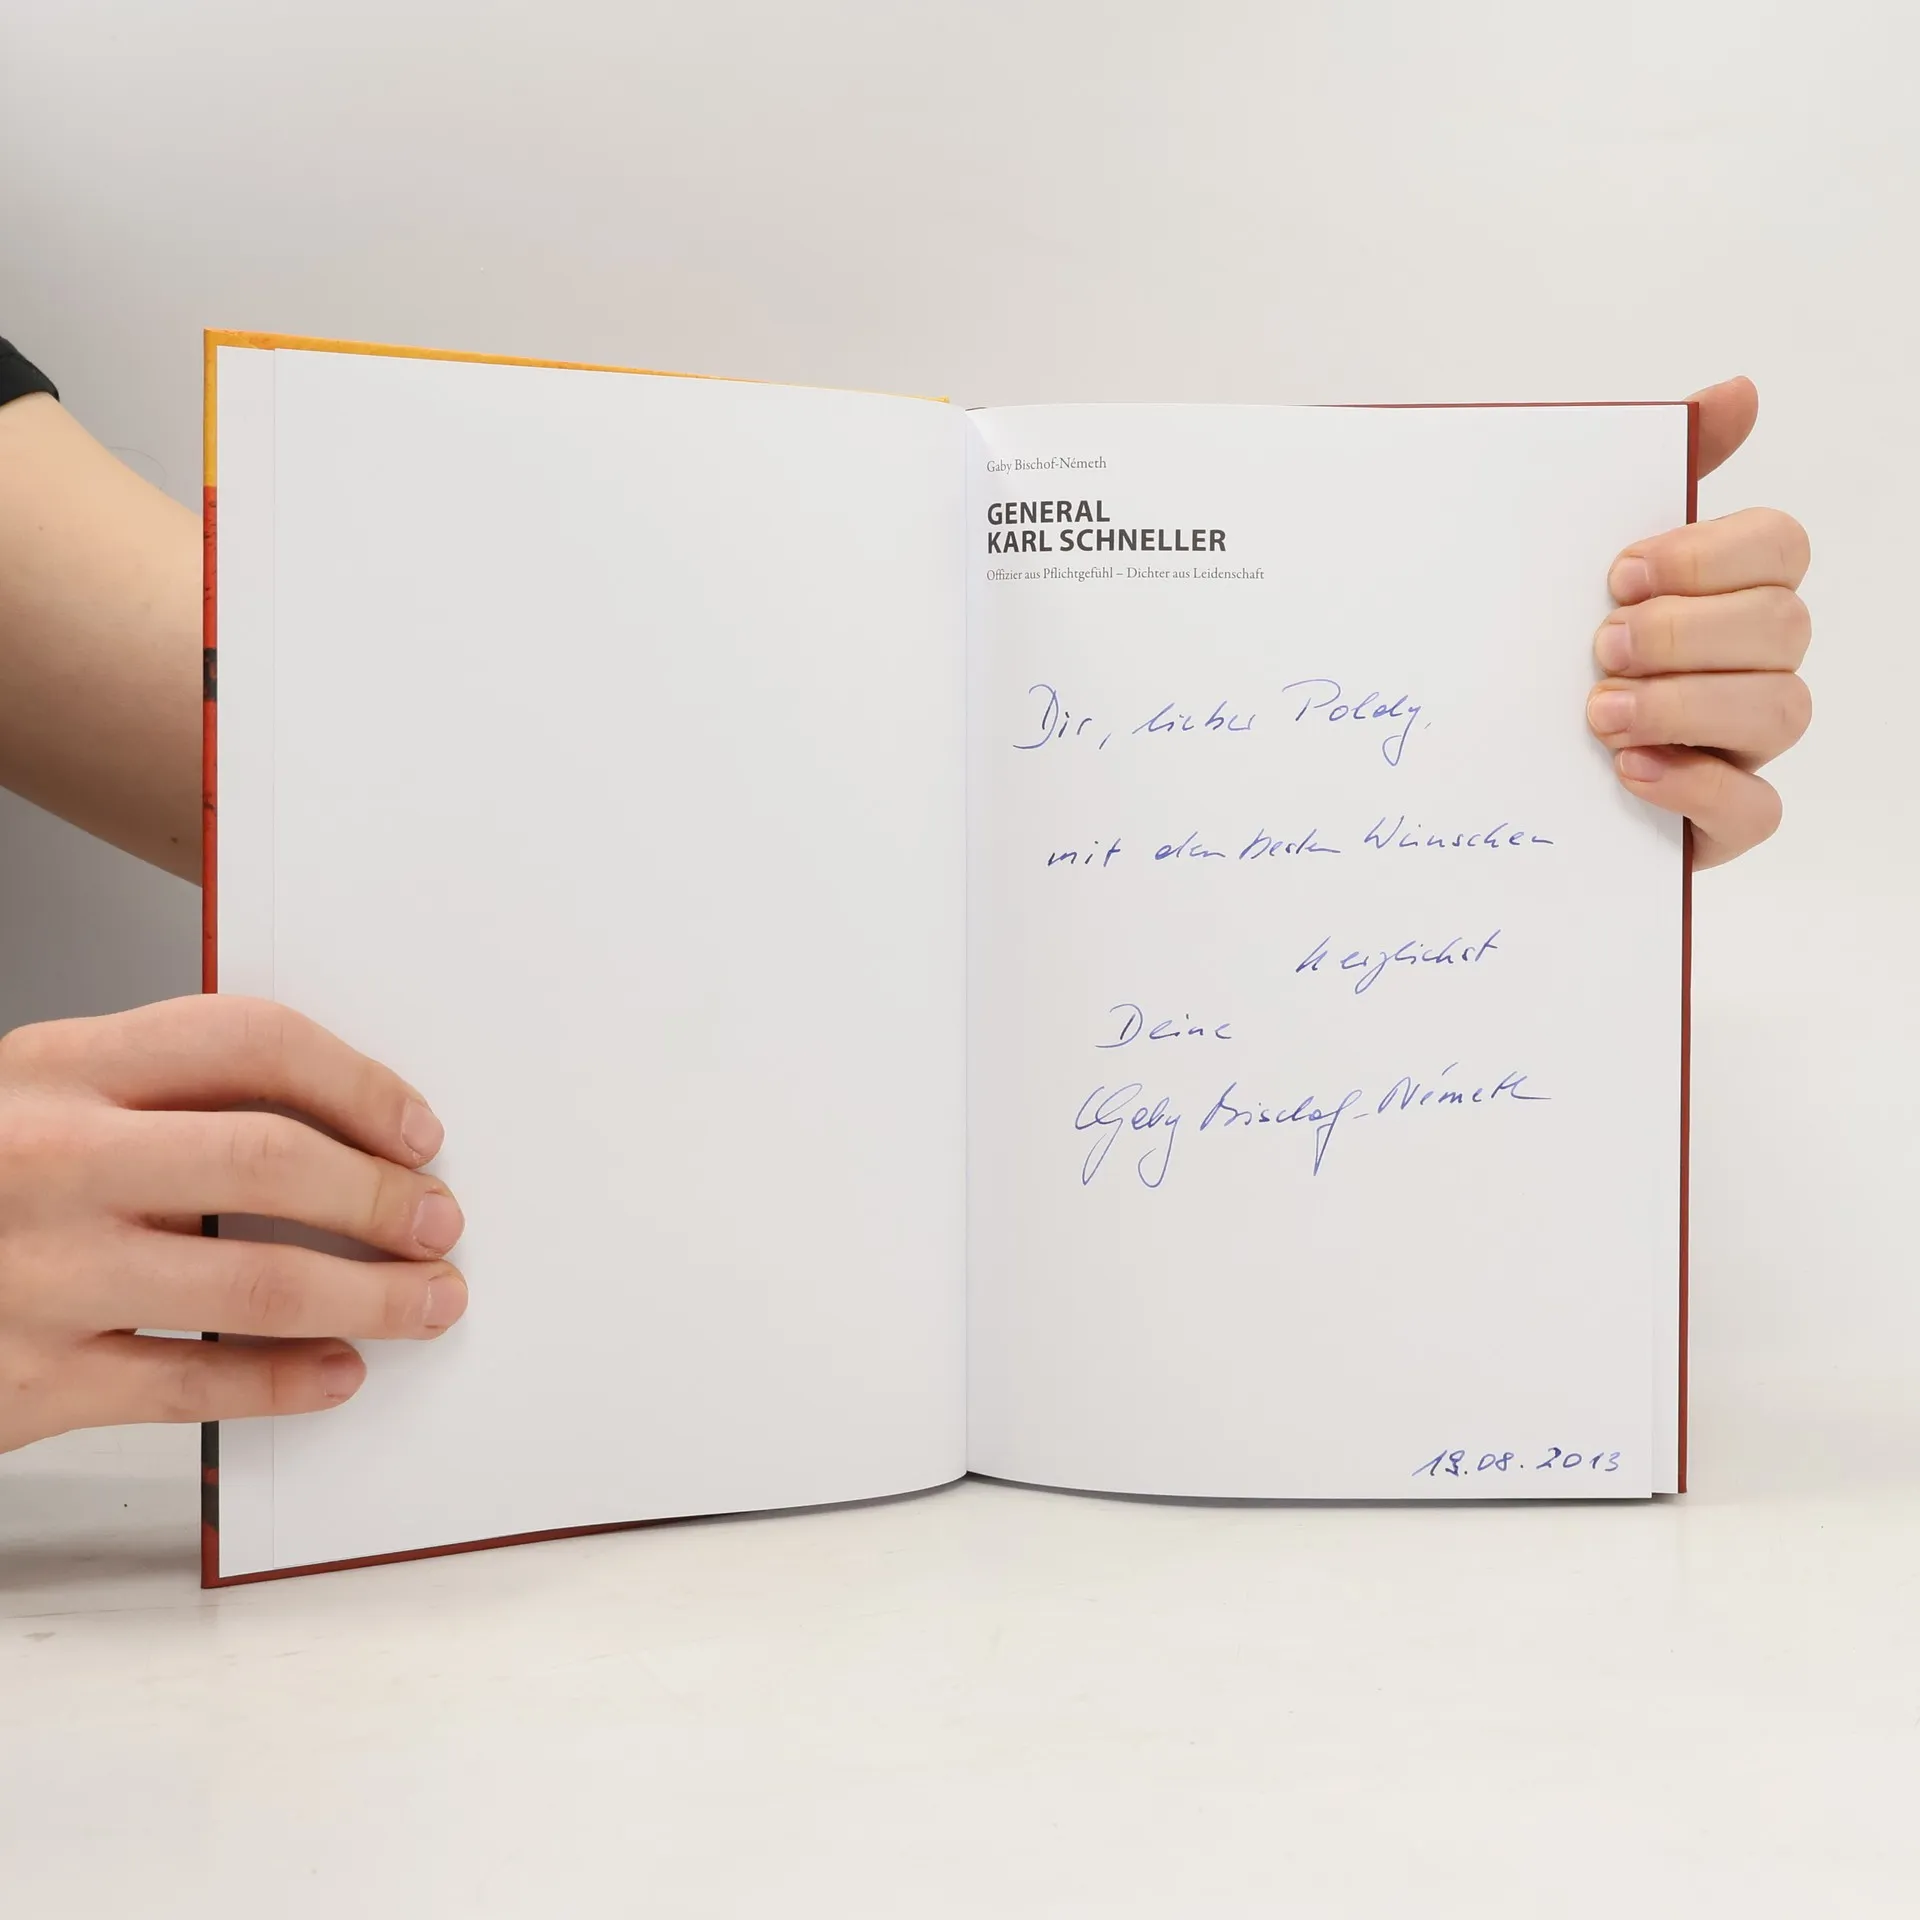 Gaby Bischof-Németh
GENERAL
KARL SCHNELLER
Offizier aus Pflichtgefühl – Dichter aus Leidenschaft
Dir, lieber Poldy,
mit den besten Wünschen
herzlichst
Deine
Gaby Bischof-Németh
19.08.2013